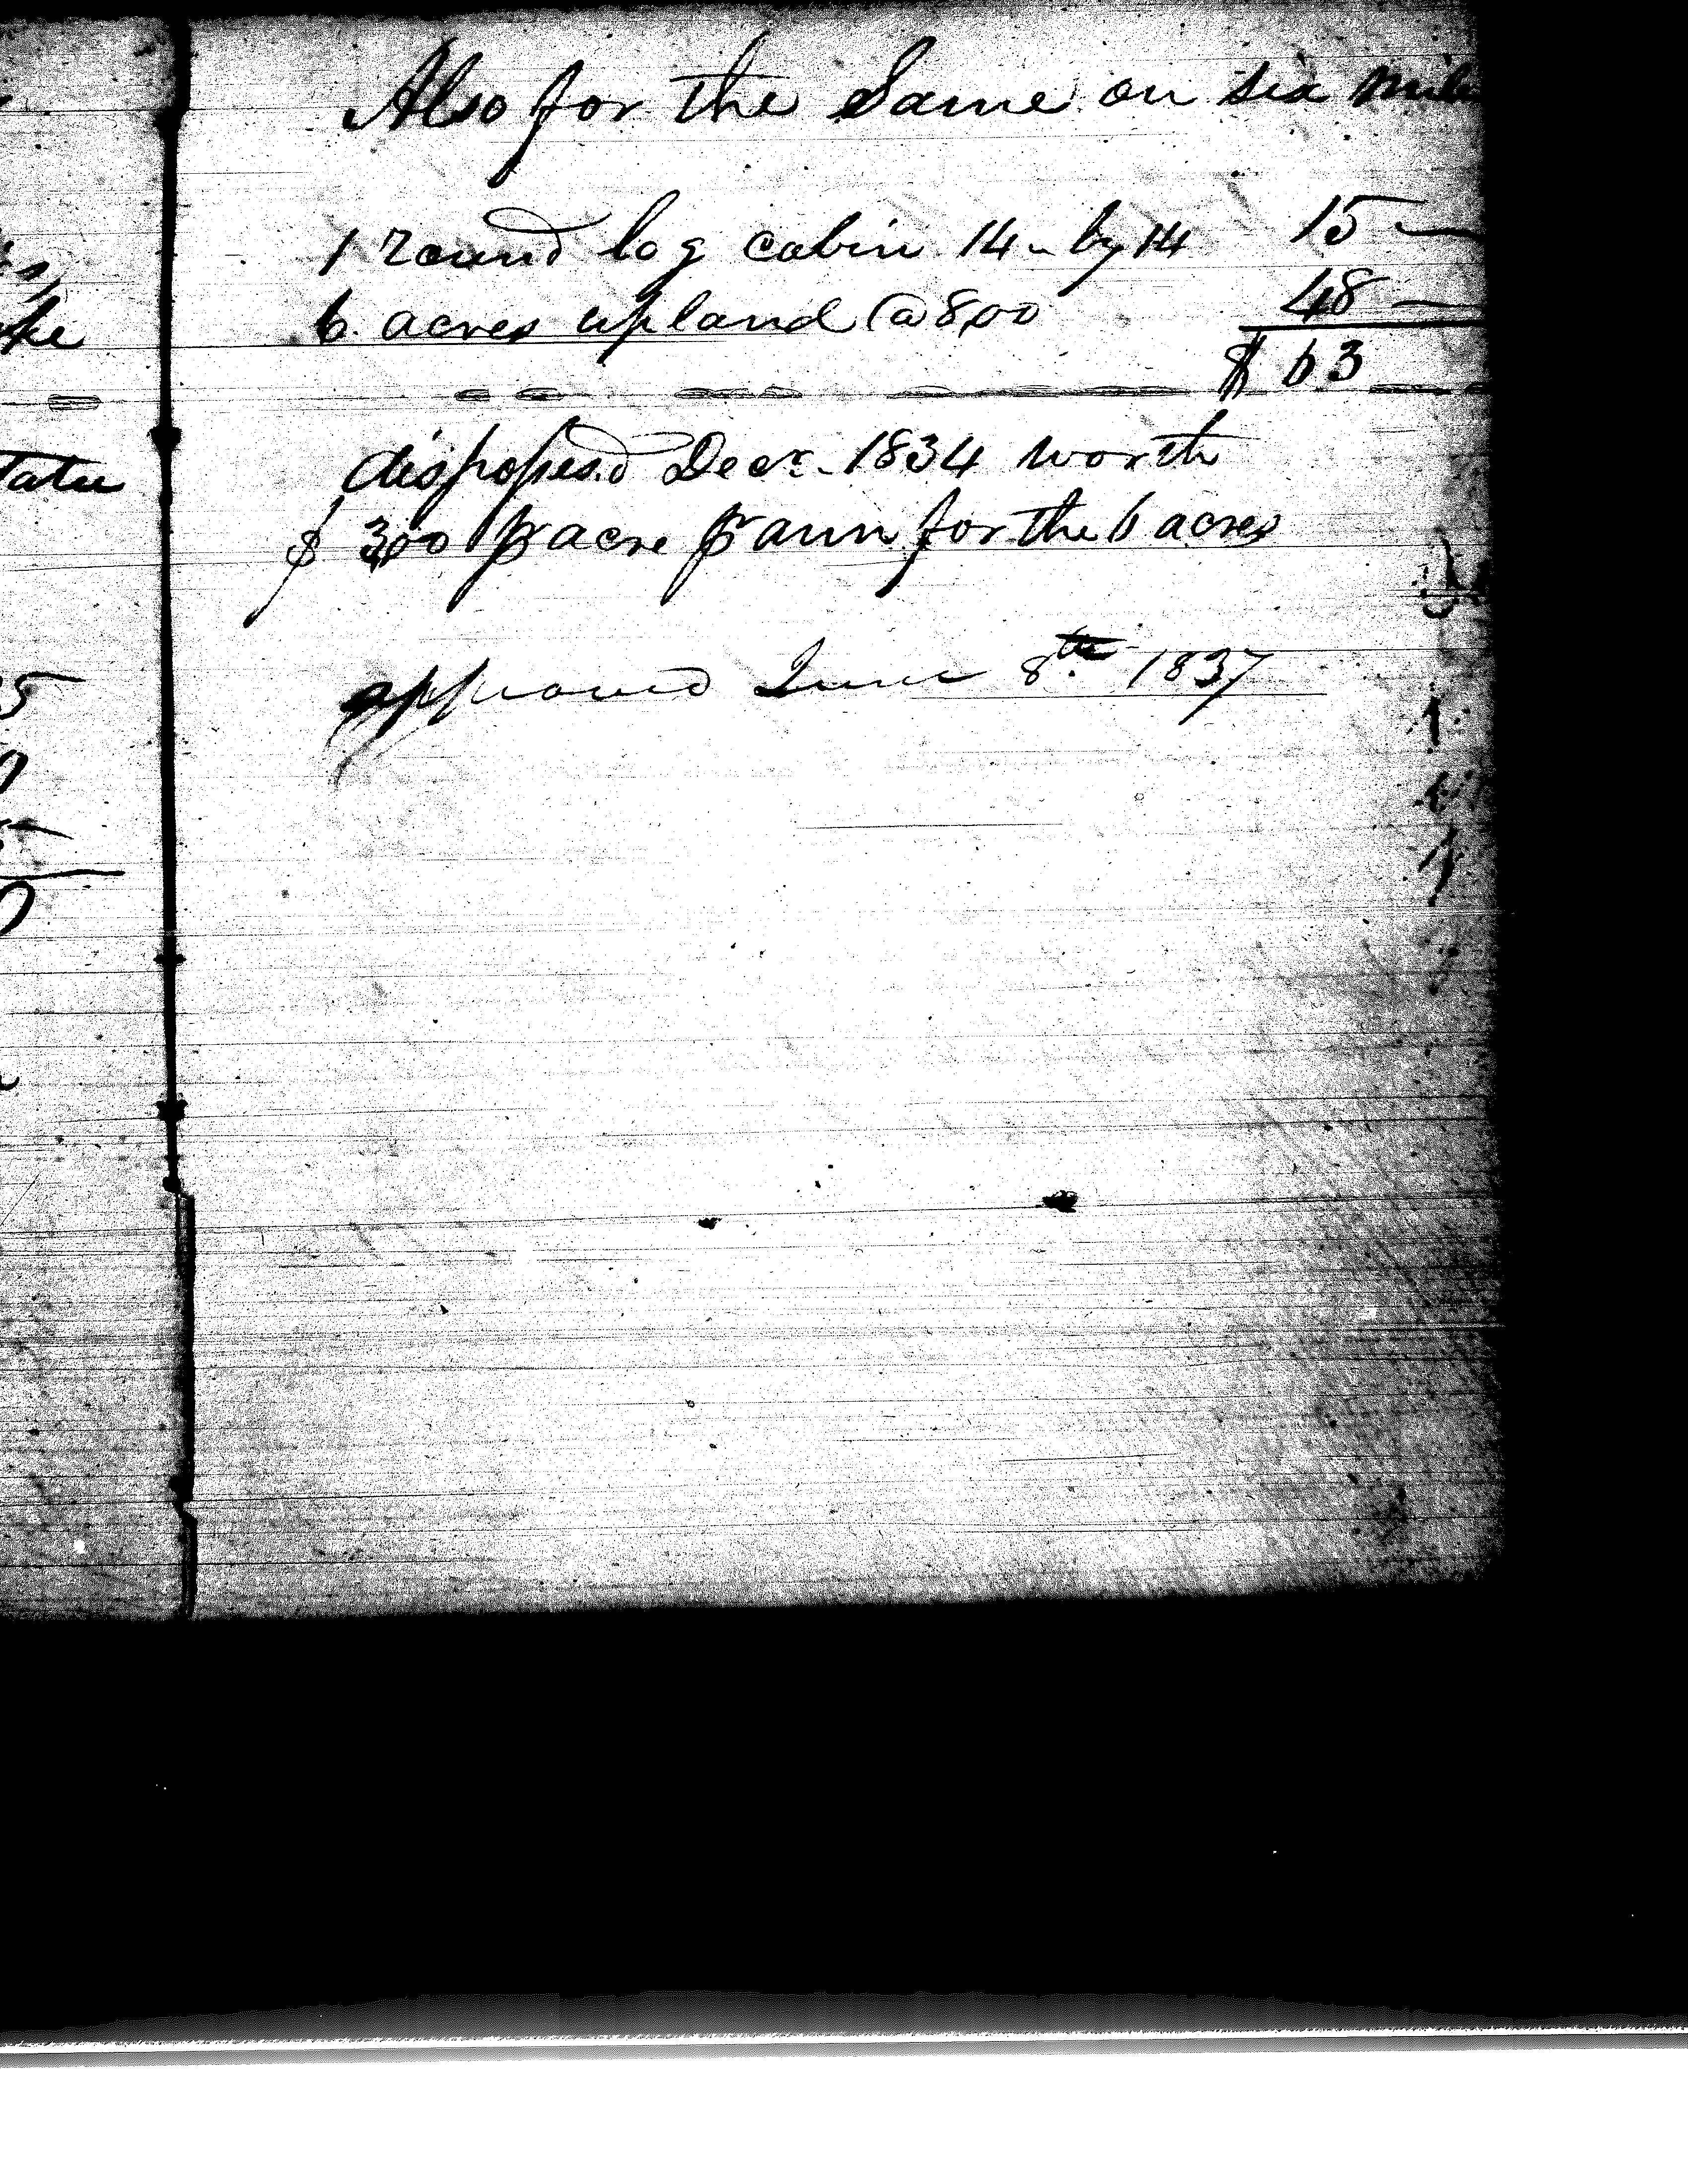 Also for the Same on six mile
1 round log cabin 14 - by 14 15
6 acres upland @ 8,00 48
$ 63
dispossesd Decr. 1834 worth
$ 300 pr acre pr ann for the 6 acres
approved June 8th 1837